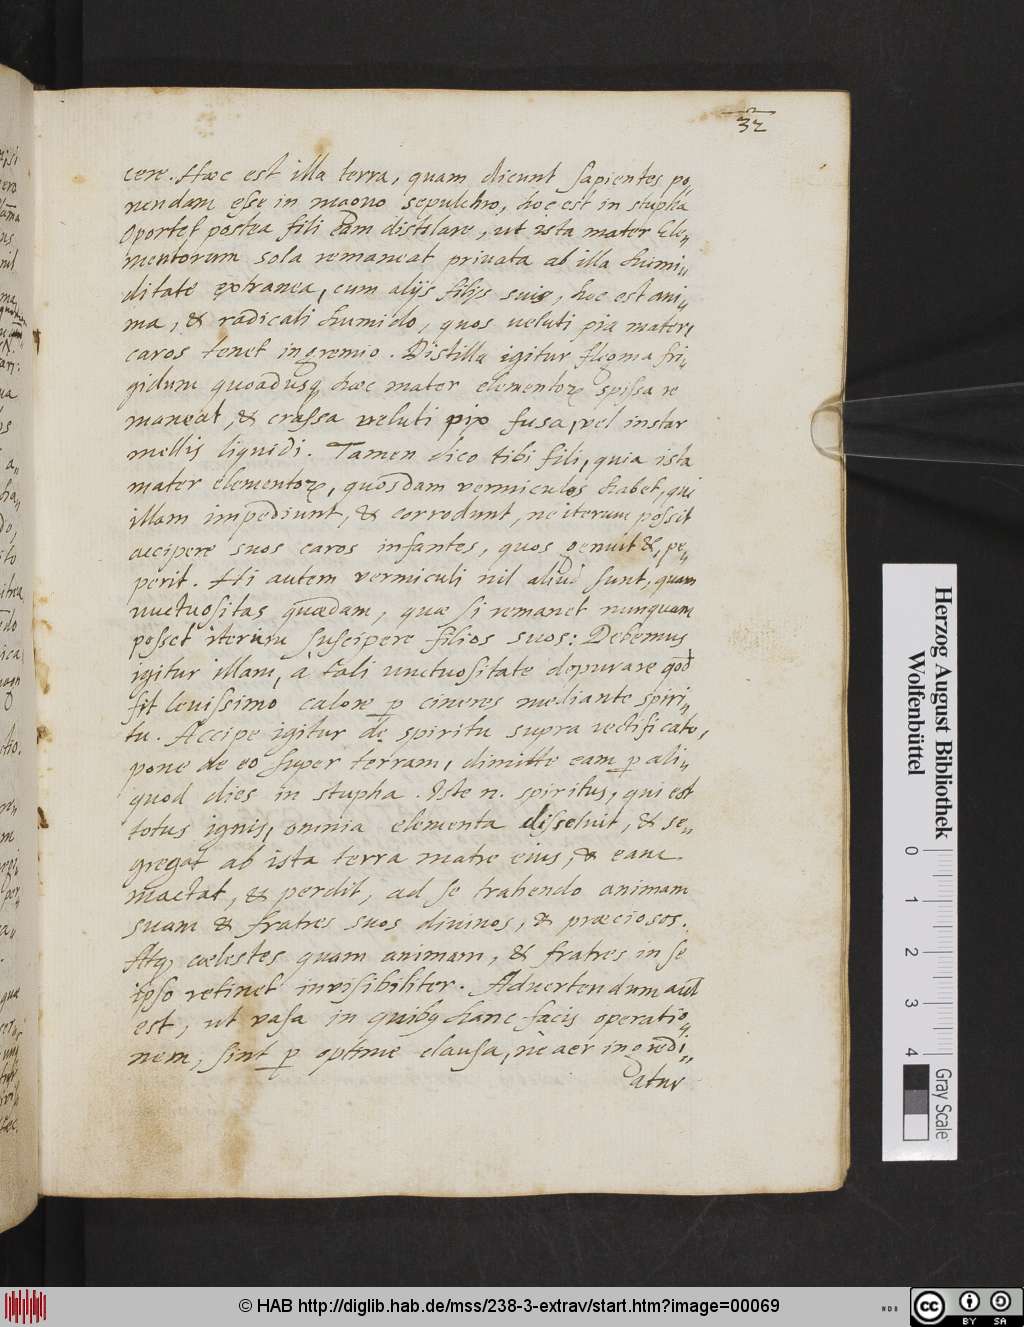 32
cere. Hæc est illa terra, quam dicunt sapientes po„
nendam esse in magno sepulchro, hoc est in stupha
Oportet postea fili eam distillare, ut ista mater Ele„
mentorum sola remaneat privata ab illa humi„
ditate extranea, cum alijs filijs suis, hoc est ani„
ma, & radicali humido, quos veluti pia mater,
caros tenet in gremio. Distilla igitur flegma fri„
gidum quoadusq̃ hæc mater elementoꝝ spissa re
maneat, & crassa veluti pix fusa, vel instar
mellis liquidi. Tamen dico tibi fili, quia ista
mater elementoꝝ, quosdam vermiculos habet, qui
illam impediunt, & corrodunt, ne iterum possit
accipere suos caros infantes, quos genuit &, pe„
perit. Hi autem vermiculi nil aliud sunt, quam
unctuositas quædam, quæ si remanet nunquam
posset iterum suscipere filios suos: Debemus
igitur illam, à tali unctuositate depurare qođ
fit levissimo calore ꝑ cineres mediante spiri„
tu. Accipe igitur de spiritu supra rectificato,
pone de eo super terram, dimitte eam ꝑ ali„
quod dies in stupha. Iste n. spiritus, qui est
totus ignis, omnia elementa dissoluit, & se„
gregat ab ista terra matre eius, & eam
mactat, & perdit, ad se trahendo animam
suam & fratres suos divinos, & præciosos.
Atq̃ cœlestes quam animam, & fratres in se
ipso retinet invisibiliter. Advertendum aut
est, ut vasa in quibꝫ hanc facis operatio„
nem, sint ꝑ optime clausa, nè aer ingredi„
atur
Herzog August Bibliothek
Wolfenbüttel
0 1 2 3 4
Gray Scale
© HAB http://diglib.hab.de/mss/238-3-extrav/start.htm?image=00069
cc BY SA